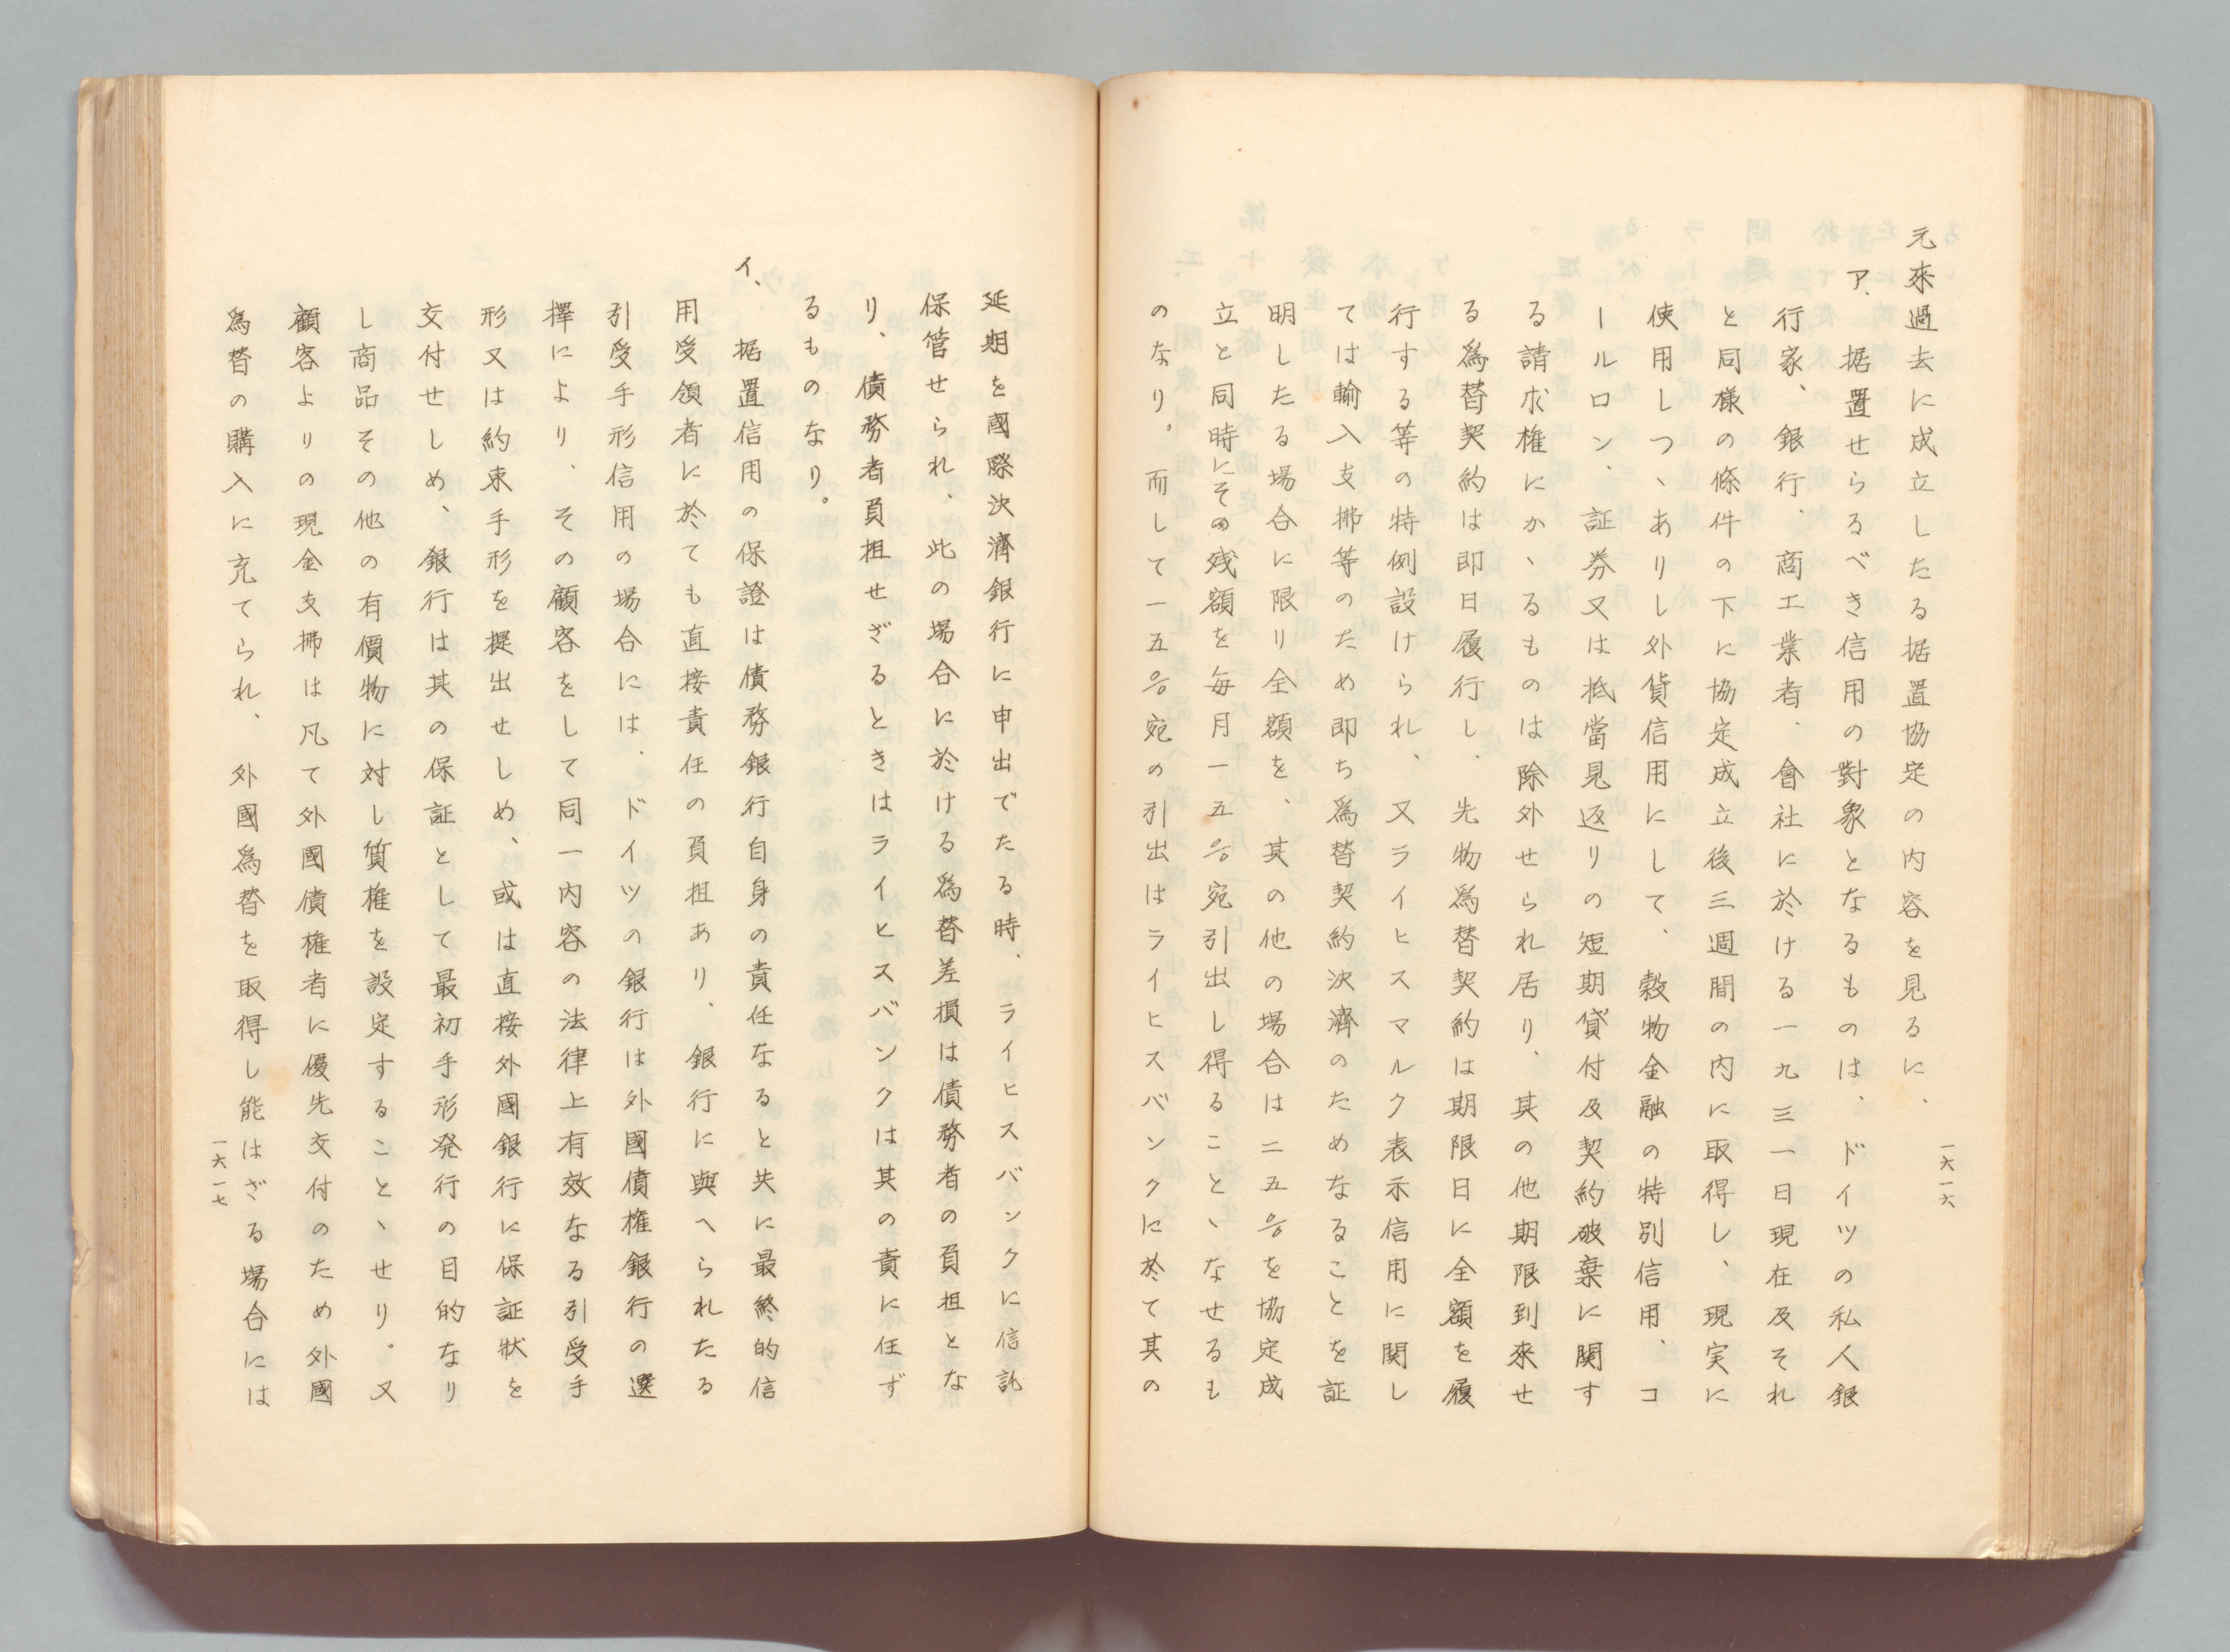 元來過去に成立したる据置協定の内容を見るに、
ア、据置せらるべき信用の對象となるものは、ドイツの私人銀
行家、銀行、商工業者、會社に於ける一九三一日現在及それ
と同様の條件の下に協定成立後三週間の内に取得し、現実に
使用しつゝありし外貨信用にして、穀物金融の特別信用、コ
ールロン、証券又は抵當見返りの短期貸付及契約破棄に関す
る請求権にかゝるものは除外せられ居り、其の他期限到來せ
る為替契約は即日履行し、先物為替契約は期限日に全額を履
行する等の特例設けられ、又ライヒスマルク表示信用に関し
ては輸入支拂等のため即ち為替契約決濟のためなることを証
明したる場合に限り全額を、其の他の場合は二五%を協定成
立と同時にその残額を毎月一五%宛引出し得ることゝなせるも
のなり。而して一五%宛の引出はライヒスバンクに於て其の
一六一六
延期を國際決濟銀行に申出でたる時、ライヒスバンクに信託
保管せられ、此の場合に於ける為替差損は債務者の負担とな
り、債務者負担せざるときはライヒスバンクは其の責に任ず
るものなり。
イ、据置信用の保證は債務銀行自身の責任なると共に最終的信
用受領者に於ても直接責任の負担あり、銀行に與へられたる
引受手形信用の場合には、ドイツの銀行は外國債権銀行の選
擇により、その顧客をして同一内容の法律上有效なる引受手
形又は約束手形を提出せしめ、或は直接外國銀行に保証狀を
交付せしめ、銀行は其の保証として最初手形発行の目的なり
し商品その他の有價物に対し質権を設定することゝせり。又
顧客よりの現金支拂は凡て外國債権者に優先交付のため外國
為替の購入に充てられ、外國為替を取得し能はざる場合には
一六一七